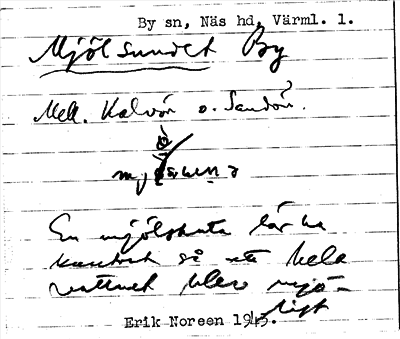 By sn, Näs hd, Värml. l.
Mjölsundet By
Mell. Kalvön o. Sandön?
En mjölskuta lär ha
kantrat så att hela
vattnet blev mjö-
ligt
Erik Noreen 1943.